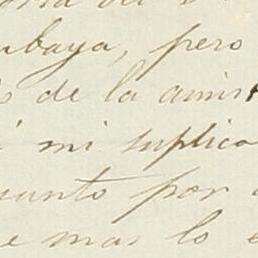 ubaya, pero
de la amist
mi suplica
unto por
e mas lo e